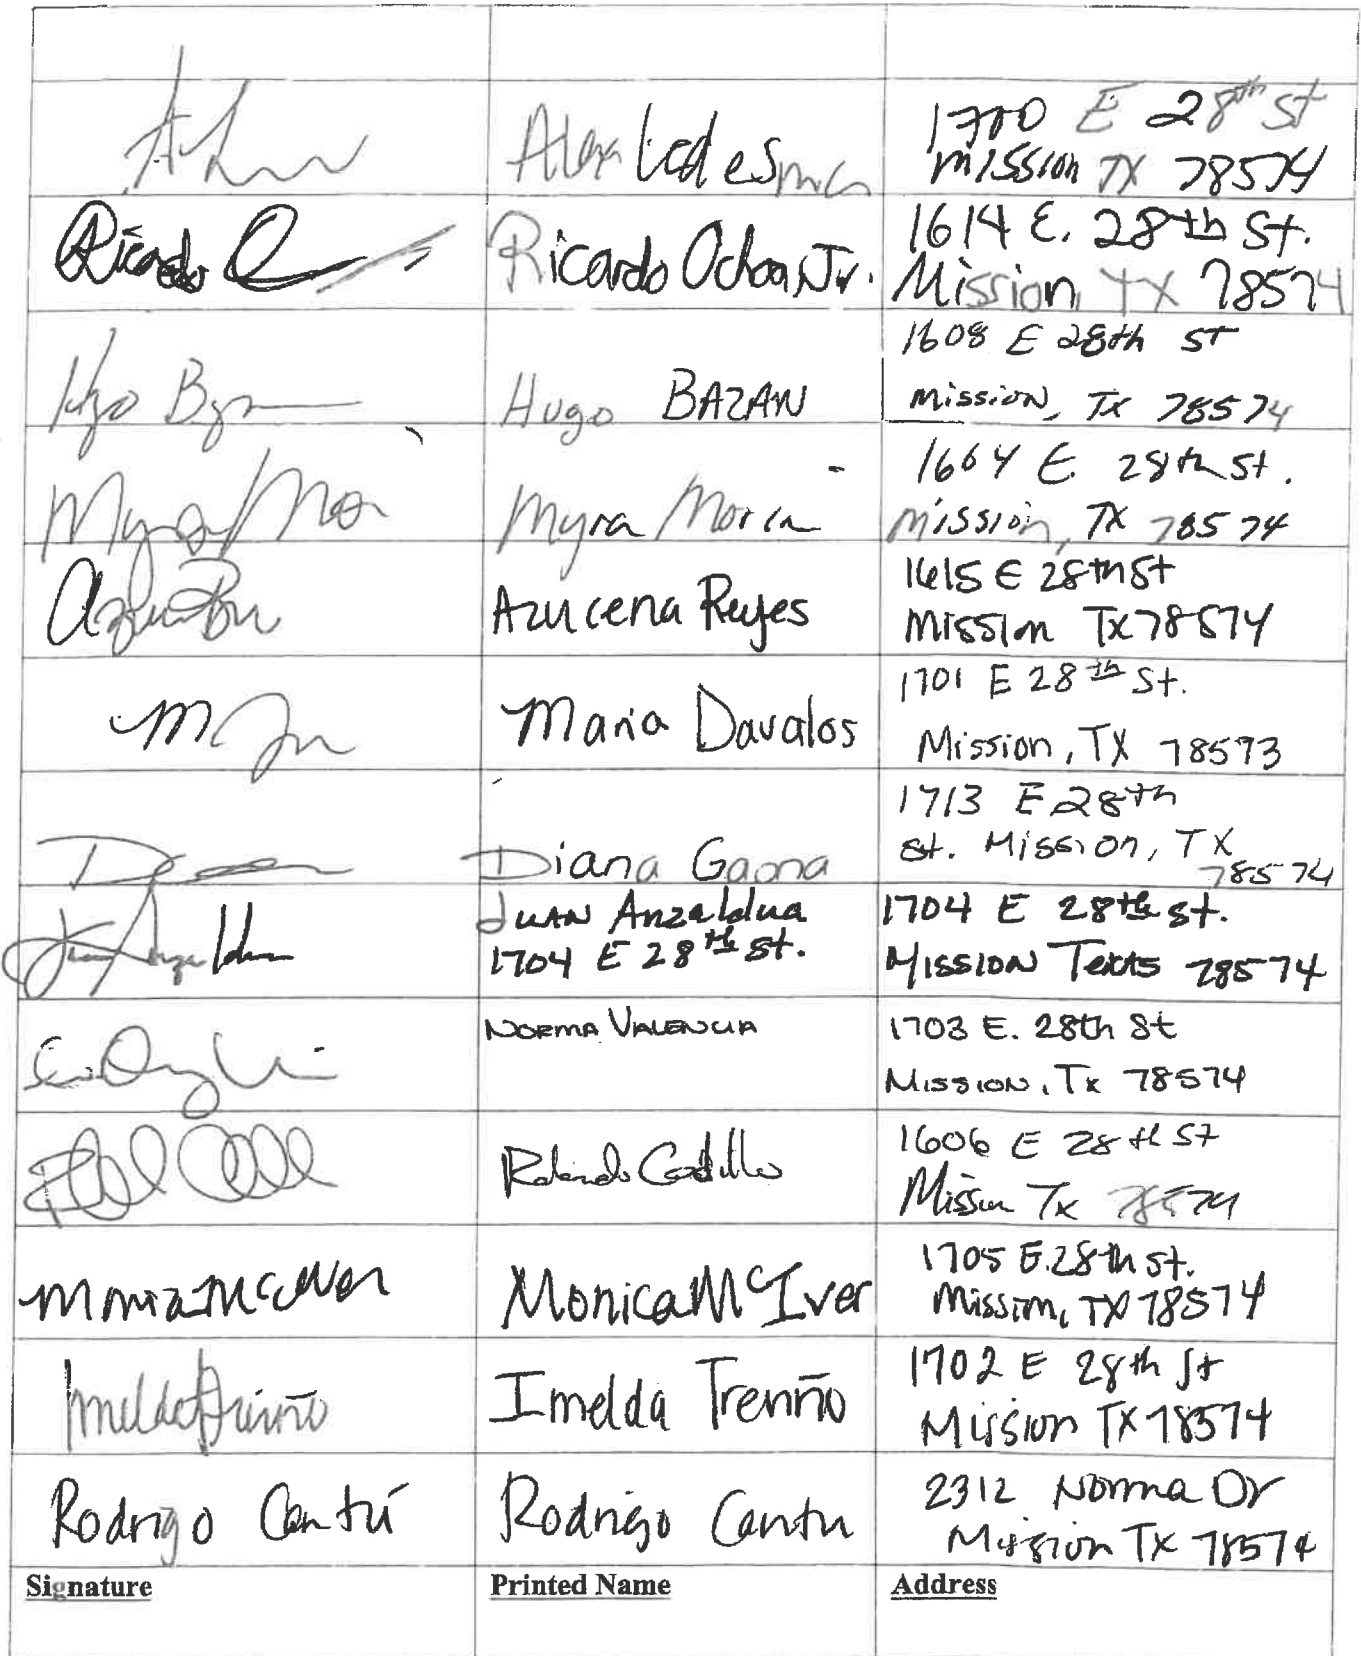 Alex Ledesma
1700 E 28th St
Mission TX 78574
Ricardo
Ricardo Ochoa Jr.
1614 E. 28th St.
Mission, TX 78574
Hugo
Hugo BAZAN
1608 E 28th ST
Mission, TX 78574
Myra
Myra Morin
1664 E. 28th St.
Mission, TX 78574
Azucena Reyes
1615 E 28th St
Mission Tx 78574
Maria Davalos
1701 E 28th St.
Mission, TX 78573
Diana Gaona
1713 E 28th
st. Mission, TX
78574
Juan Anzaldua
JUAN Anzaldua
1704 E 28th St.
1704 E 28th St.
MISSION Texas 78574
NORMA VALENCIA
1703 E. 28th St
MISSION, Tx 78574
Rolando Castillo
1606 E 28th ST
Mission Tx 78574
Monica McIver
Monica McIver
1705 E. 28th St.
Mission, TX 78574
Imelda Treviño
Imelda Treviño
1702 E 28th St
Mission TX 78574
Rodrigo Cantú
Rodrigo Cantu
2312 Norma Dr
Mission TX 78574
Signature
Printed Name
Address